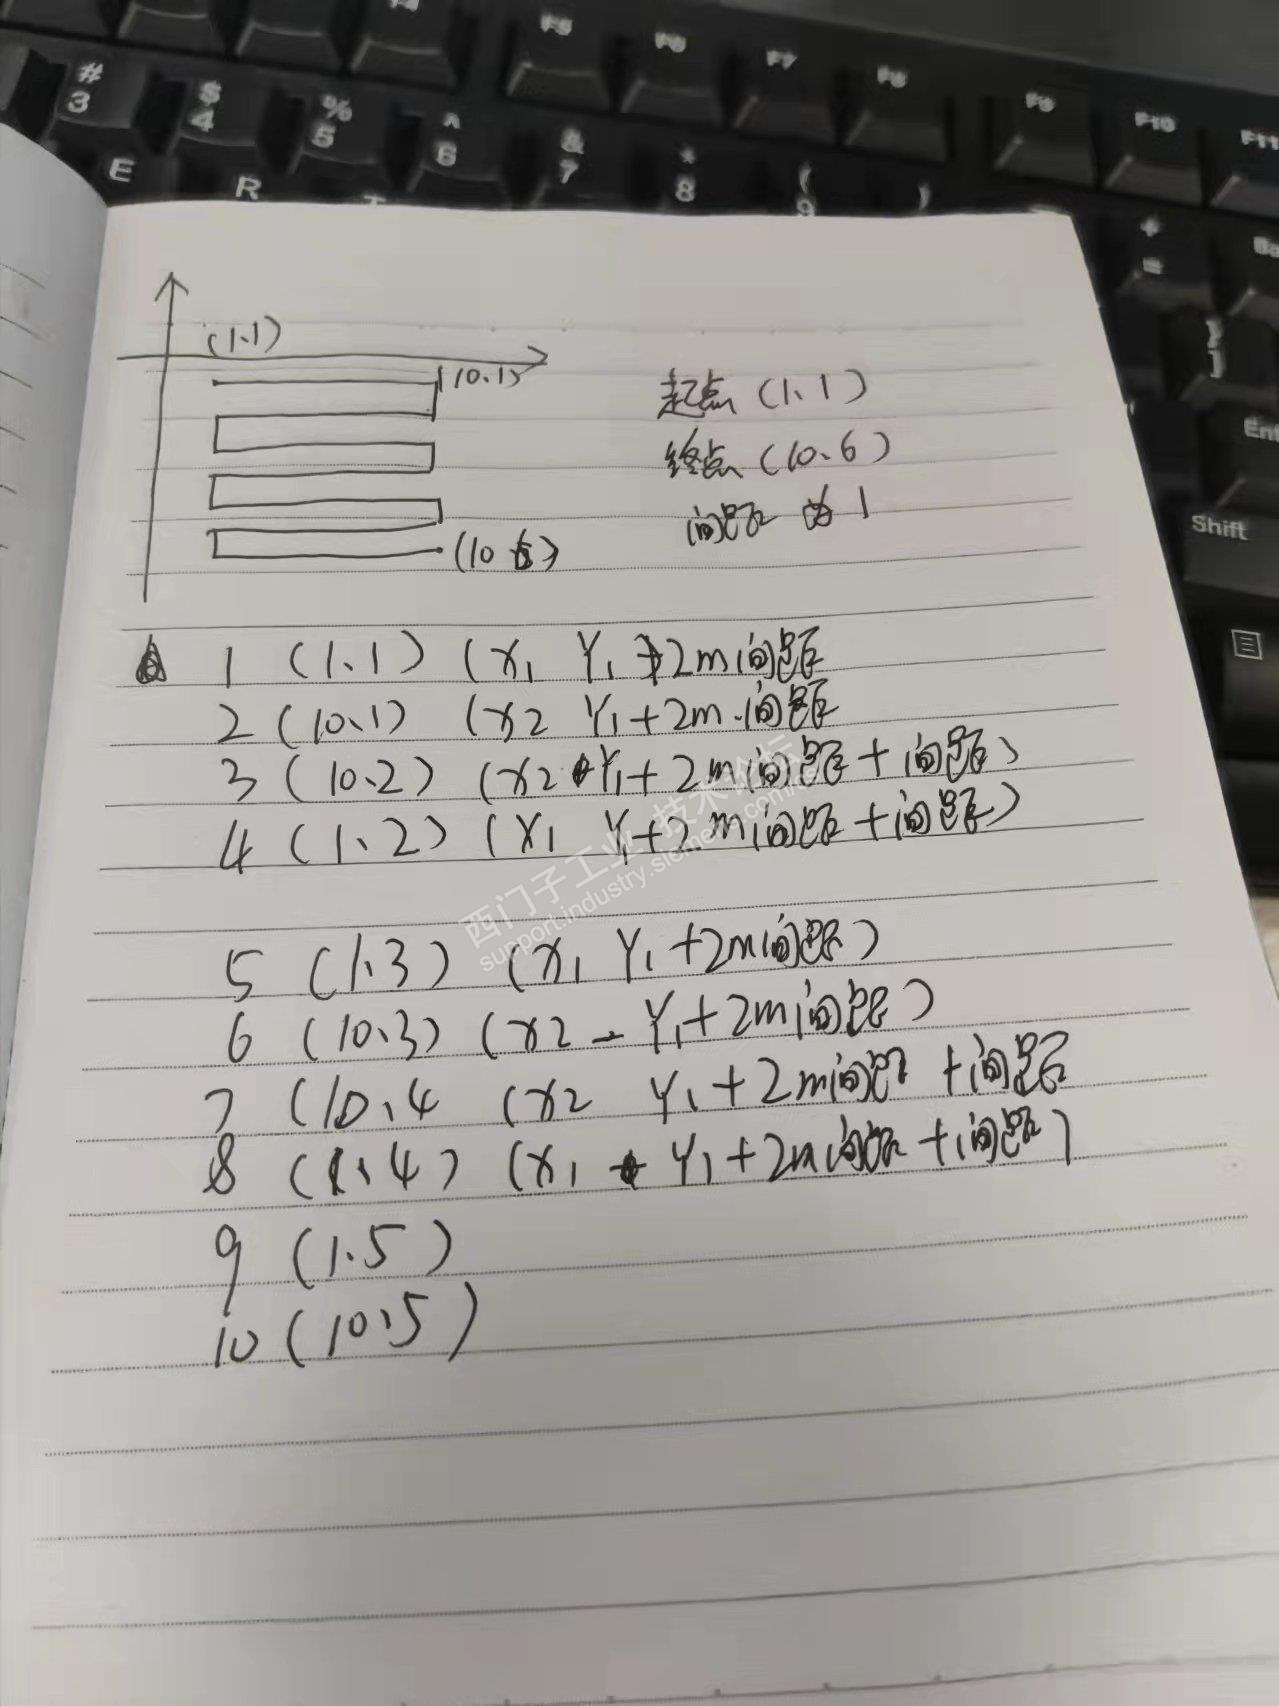 F4
F5
F6
F7
F8
F9
F10
F11
#
3
$
4
%
5
^
6
&
7
*
8
(
9
)
+
=
E
R
T
}
]
Shift
(1、1)
(10、1)
起点 (1、1)
终点 (10、6)
间距 为 1
(10
1 (1、1) (X1 Y1+2m间距
2 (10、1) (X2 Y1+2m·间距
3 (10、2) (X2 Y1+2m间距+间距)
4 (1、2) (X1 Y1+2m间距+间距)
5 (1、3) (X1 Y1+2m间距)
6 (10、3) (X2 - Y1+2m间距)
7 (10、4 (X2 Y1+2m间距+间距
8 (1、4) (X1 Y1+2m间距+间距)
9 (1、5)
10 (10、5)
西门子工业 技术论坛
support.industry.siemens.com/cs